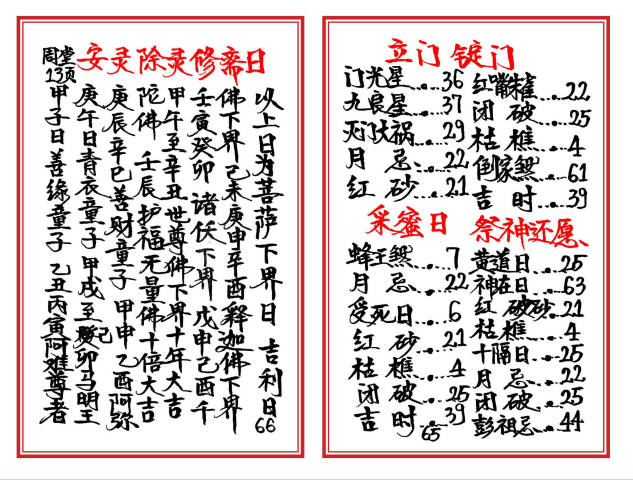 安灵除灵修斋日
周堂
13页
甲子日善缘童子 乙丑丙寅阿难尊者
庚午日青衣童子 甲戌至癸卯马明王
己
庚辰辛巳善财童子 甲申乙酉阿弥
陀佛 壬辰护福无量佛十倍大吉
甲午至辛丑世尊佛下界十年大吉
壬寅癸卯 诸伕下界 戊申己酉千
佛下界 己未庚申辛酉释迦佛下界
以上日为菩萨下界日吉利日
66
立门 锭门
门光星...36
九良星...37
灭门大祸...29
月 忌...22
红 砂...21
红嘴朱雀...22
闭 破...25
枯 樵...4
倒家煞...61
吉 时...39
采蜜日
蜂王煞...7
月 忌...22
受死日...6
红 砂...21
枯 樵...4
闭 破...25
吉 时...39
祭神还愿
黄道日...25
神在日...63
红 破砂...21
枯 樵...4
十福日...25
月 忌...22
闭 破...25
彭祖忌...44
65